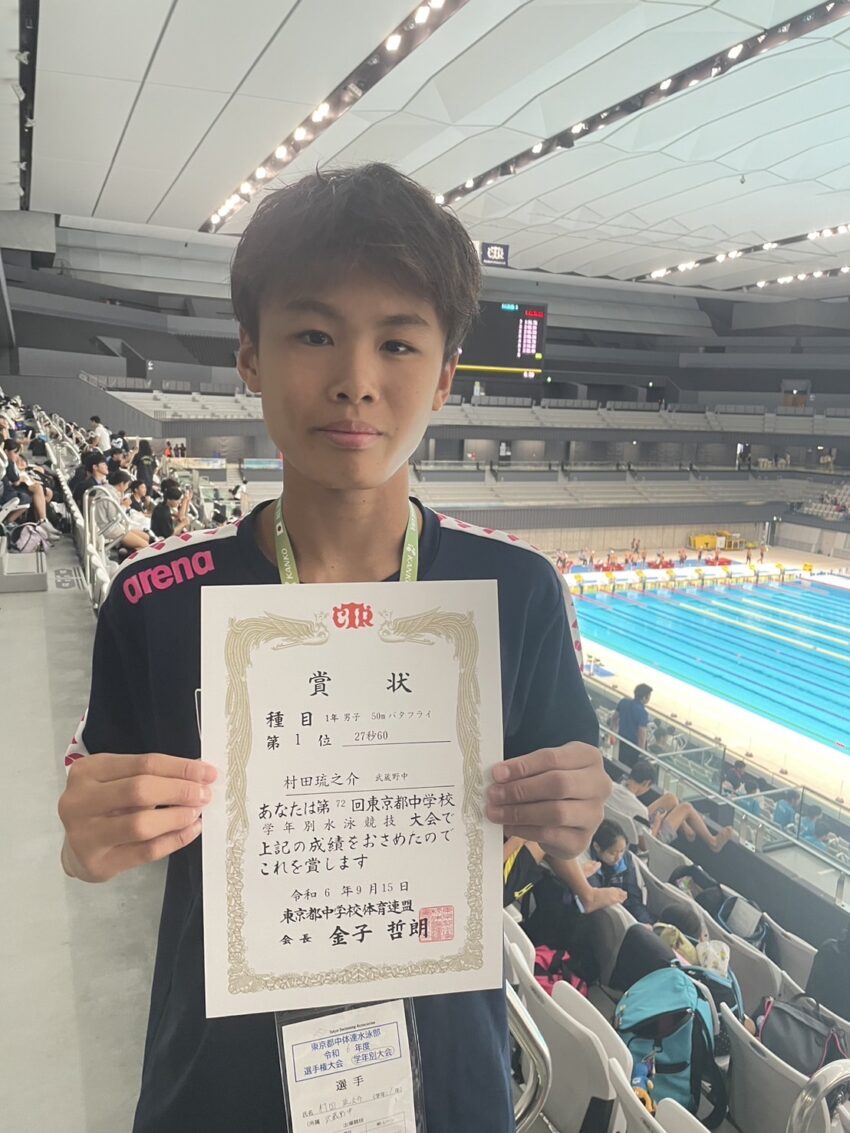 arena
KANKO
賞 状
種 目 1年 男子 50mバタフライ
第 1 位 27秒60
村田琉之介 武蔵野中
あなたは第72回東京都中学校
学年別水泳競技 大会で
上記の成績をおさめたので
これを賞します
令和 6 年 9 月 15 日
東京都中学校体育連盟
会 長 金子 哲朗
東京都中体連水泳部
令和 6 年度
選手権大会 学年別大会
選 手